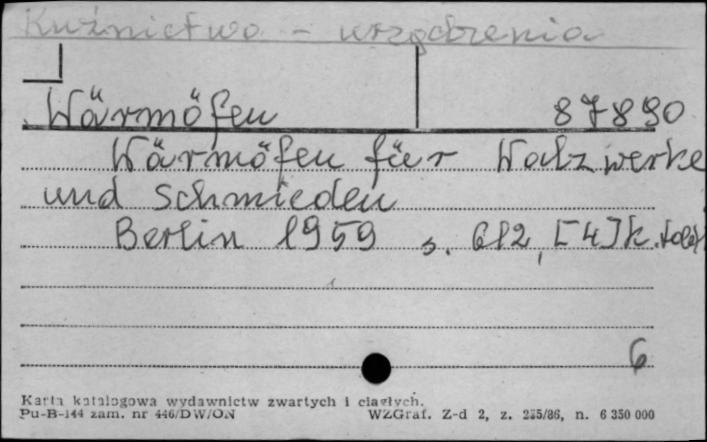 Kuźnictwo - urządzenia
Wärmöfen 87890
Wärmöfen für Walzwerke
und Schmieden
Berlin 1959 s. 612, [4] k.
6
Karta katalogowa wydawnictw zwartych i ciągłych.
Pu-B-144 zam. nr 446/DW/ON WZGraf. Z-d 2, z. 225/86, n. 6 350 000